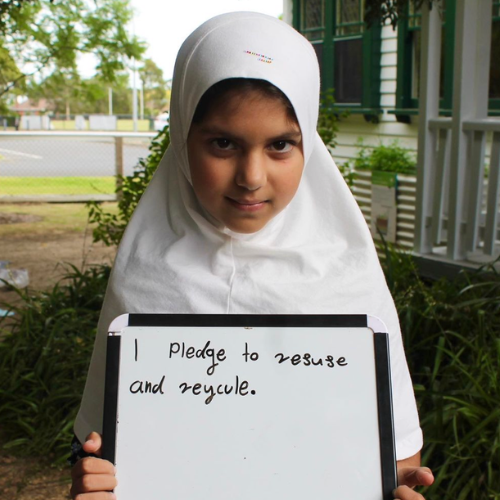 I Pledge to resuse
and reycule.